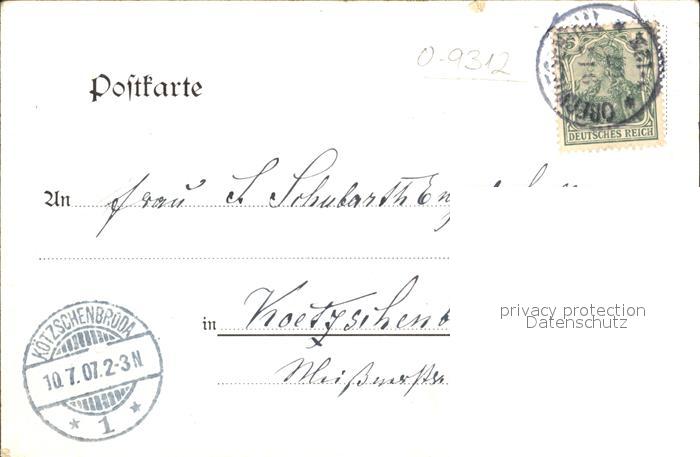 O-9312
Postkarte
DEUTSCHES REICH
An Frau S Schubarth
in Koetzschenb
Meißnerstr
KÖTZSCHENBRODA
10.7.07.2-3N
* 1 *
privacy protection
Datenschutz